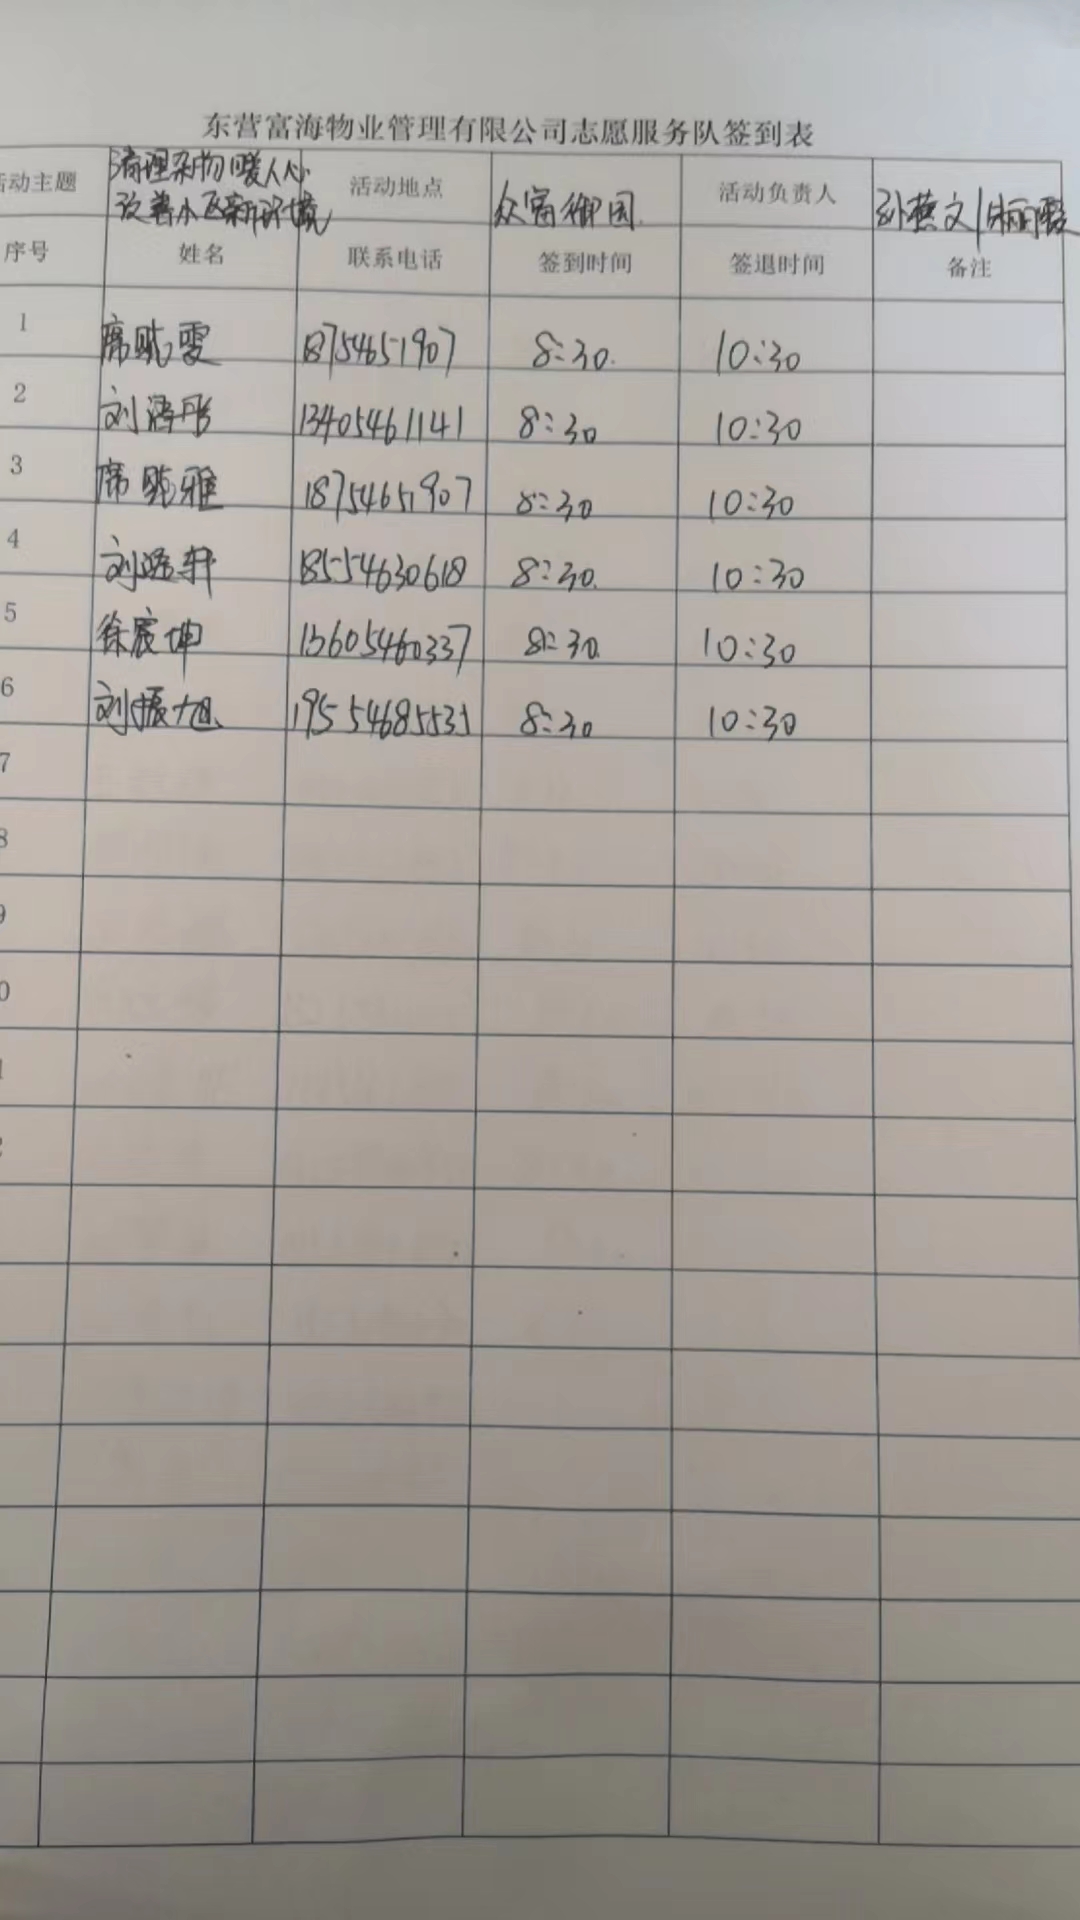 东营富海物业管理有限公司志愿服务队签到表
活动主题 清理杂物暖人心 改善小区新环境 活动地点 众富御园 活动负责人 孙燕文
序号 姓名 联系电话 签到时间 签退时间 备注
1 席 雯 18754651907 8:30 10:30
2 刘 彤 13405461141 8:30 10:30
3 席 雅 18754651907 8:30 10:30
4 刘 轩 18554630618 8:30 10:30
5 徐宸坤 13605460337 8:30 10:30
6 刘振旭 19554685531 8:30 10:30
7
8
9
0
1
2